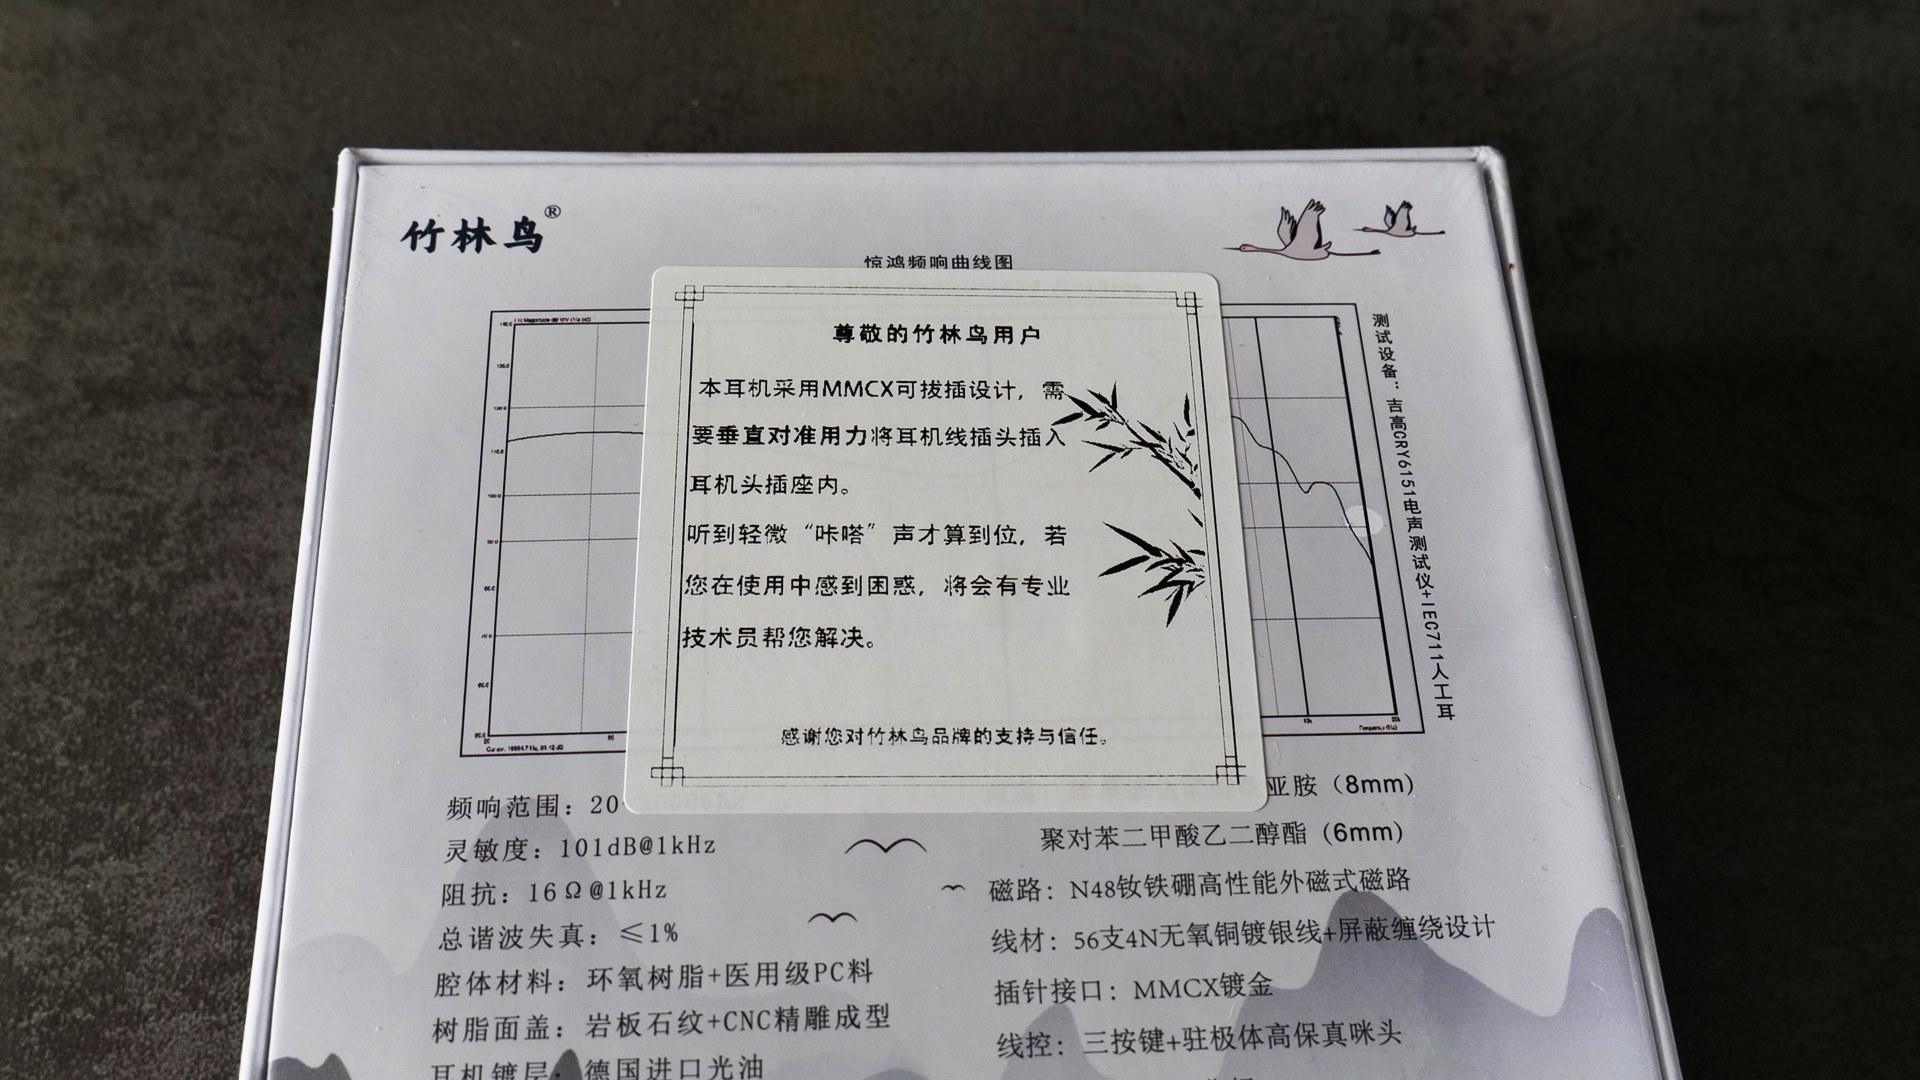 竹林鸟®
惊鸿频响曲线图
尊敬的竹林鸟用户
本耳机采用MMCX可拔插设计，需
要垂直对准用力将耳机线插头插入
耳机头插座内。
听到轻微“咔嗒”声才算到位，若
您在使用中感到困惑，将会有专业
技术员帮您解决。
感谢您对竹林鸟品牌的支持与信任。
测试设备：吉高CRY6151电声测试仪+IEC711人工耳
频响范围：20
灵敏度：101dB@1kHz
阻抗：16Ω@1kHz
总谐波失真：≤1%
腔体材料：环氧树脂+医用级PC料
树脂面盖：岩板石纹+CNC精雕成型
耳机镀层：德国进口光油
亚胺（8mm）
聚对苯二甲酸乙二醇酯（6mm）
磁路：N48钕铁硼高性能外磁式磁路
线材：56支4N无氧铜镀银线+屏蔽缠绕设计
插针接口：MMCX镀金
线控：三按键+驻极体高保真咪头